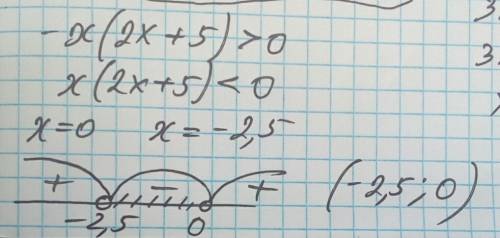 -x(2x+5)>0
x(2x+5)<0
x=0 x=-2,5
+ - +
-2,5 0 (-2,5; 0)
3
3.